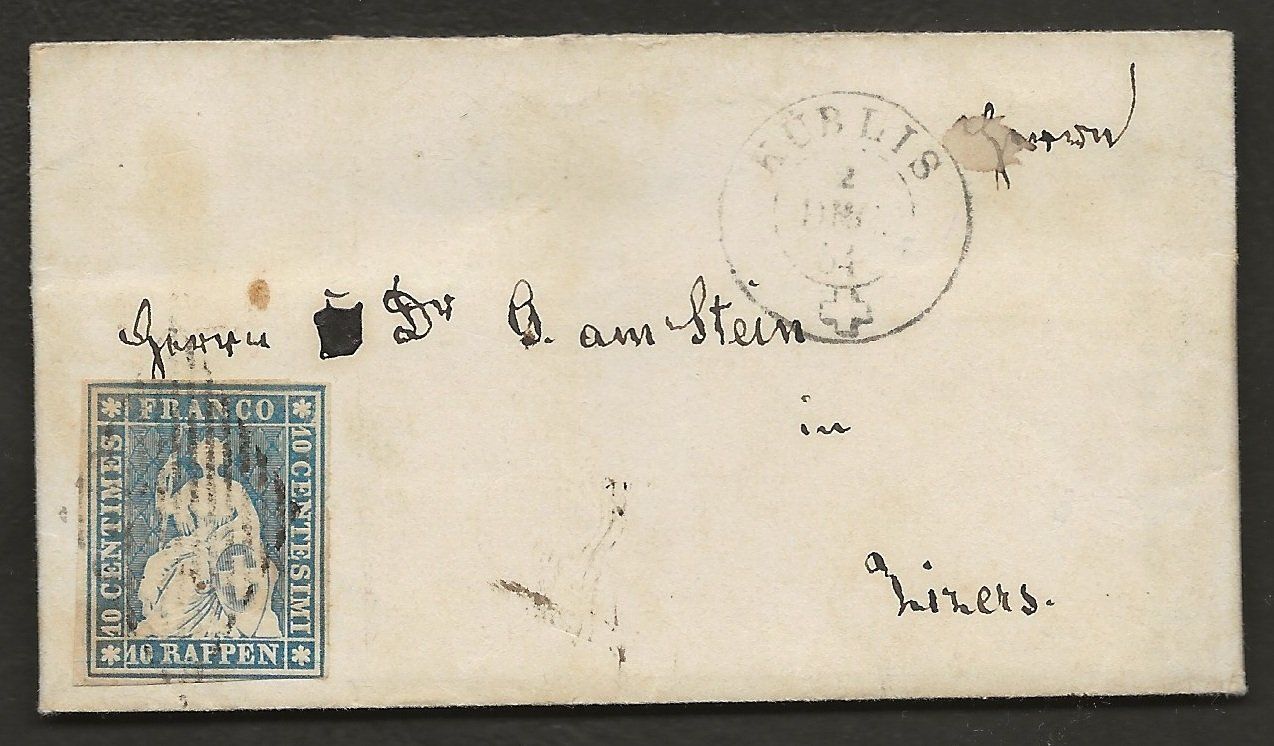 Herrn
KÜBLIS
2
Herrn Dr G. am Stein
in
Zizers.
FRANCO
10 CENTIMES
10 CENTESIMI
10 RAPPEN